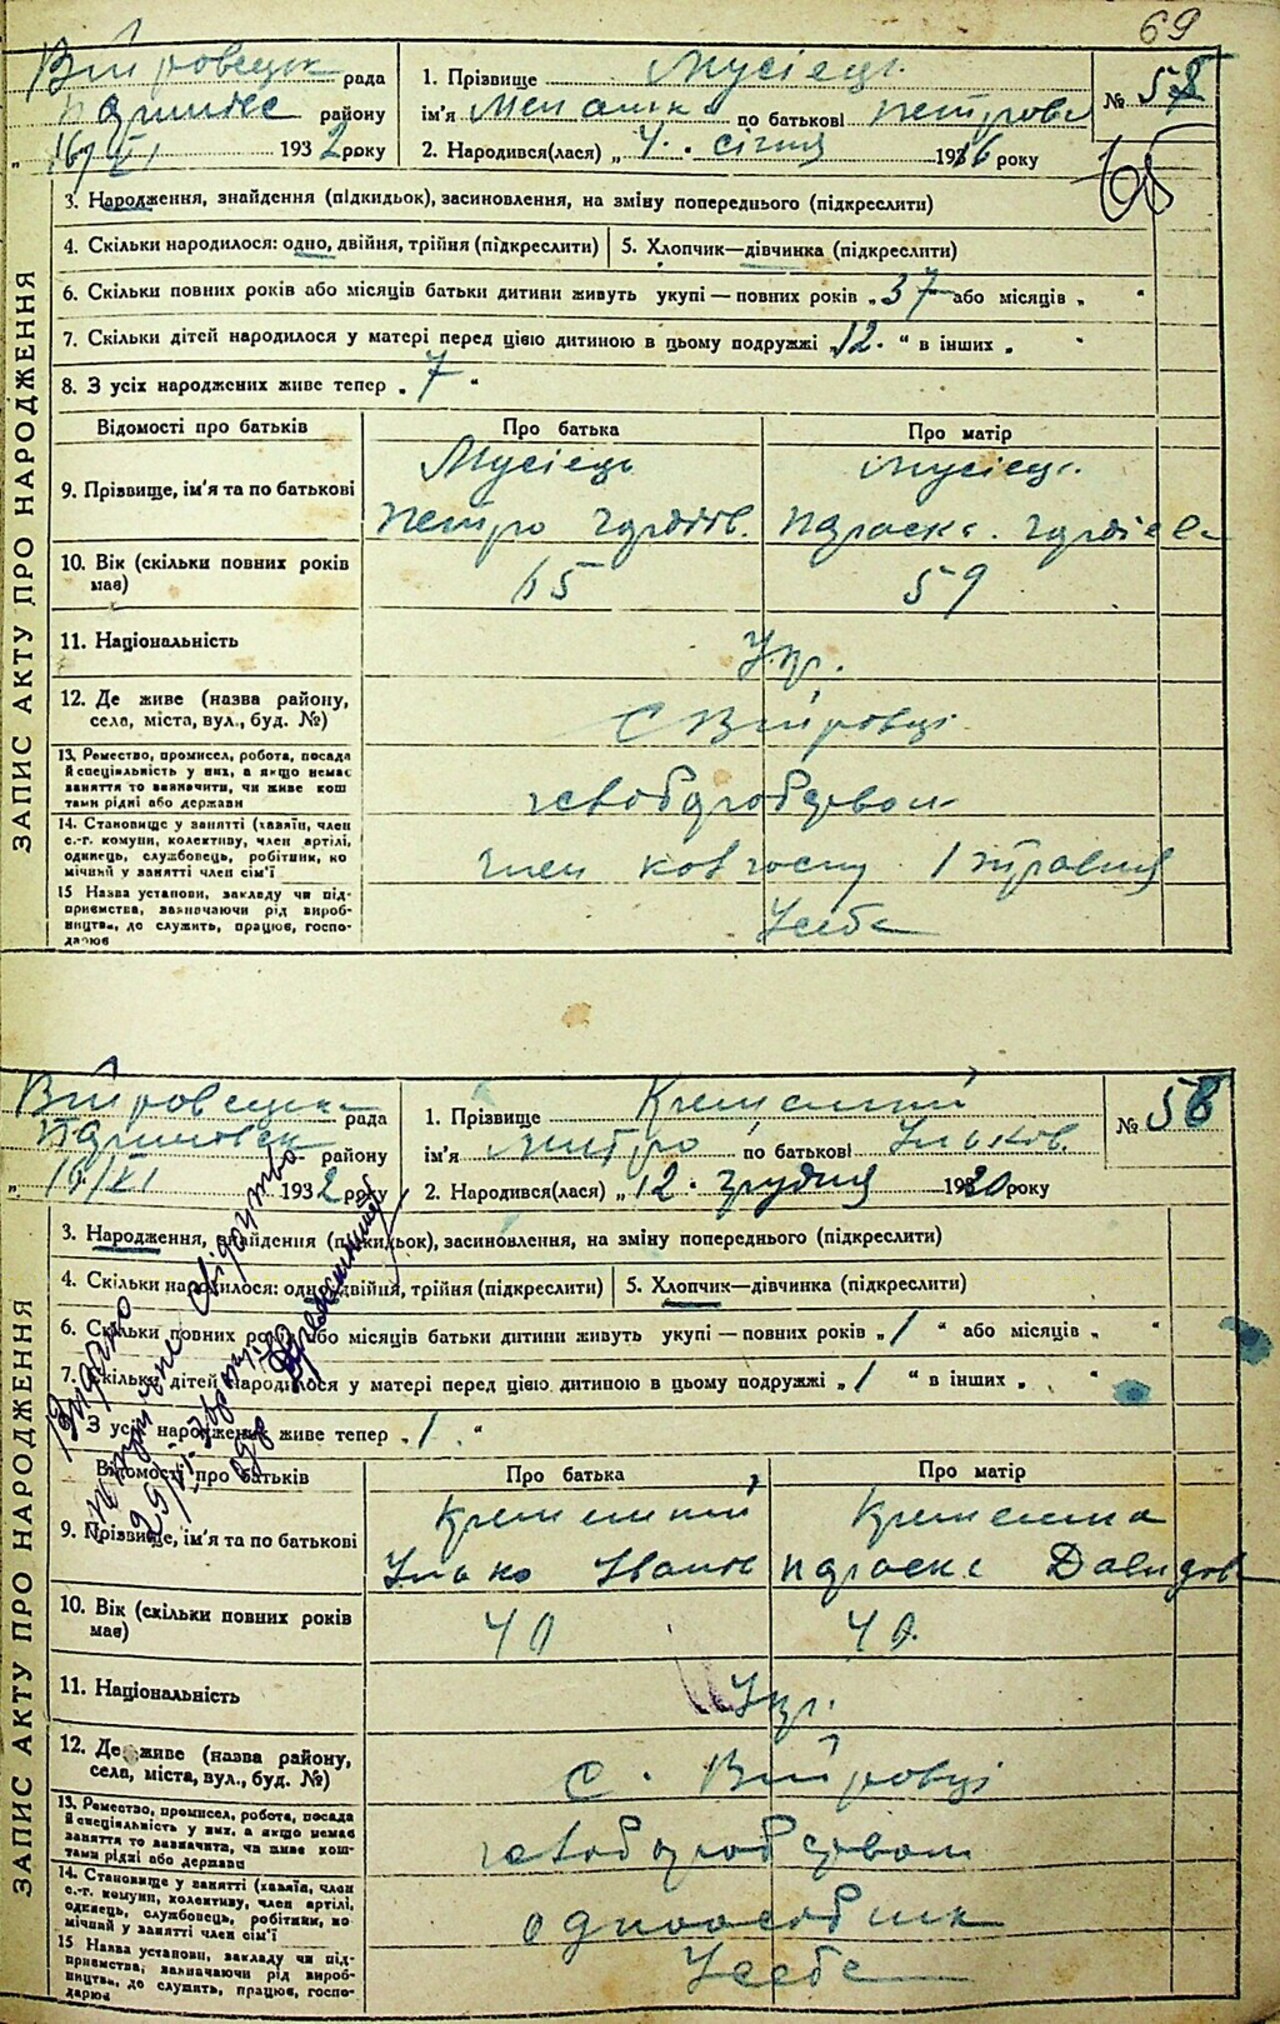 69
рада
району
16/VI 1932 року
1. Прізвище Мусієць
ім'я Меланка по батькові Петрова
2. Народився(лася) „ 4. січня 1916 року
№ 58
3. Народження, знайдення (підкидьок), засиновлення, на зміну попереднього (підкреслити)
4. Скільки народилося: одно, двійня, трійня (підкреслити) 5. Хлопчик—дівчинка (підкреслити)
6. Скільки повних років або місяців батьки дитини живуть укупі — повних років „ 37 або місяців „ “
7. Скільки дітей народилося у матері перед цією дитиною в цьому подружжі „ 12. “ в інших „ “
8. З усіх народжених живе тепер „ 7 “
ЗАПИС АКТУ ПРО НАРОДЖЕННЯ
Відомості про батьків Про батька Про матір
9. Прізвище, ім'я та по батькові
Мусієць Мусієць
Петро Параска
10. Вік (скільки повних років має)
65 59
11. Національність
Укр.
12. Де живе (назва району,
села, міста, вул., буд. №)
с
13. Ремество, промисел, робота, посада
й спеціяльність у них, а якщо немає
заняття то зазначити, чи живе кош
тами рідні або держави
14. Становище у занятті (хазяїн, член
с.-г. комуни, колективу, член артілі,
одинець, службовець, робітник, по
мічний у занятті член сім'ї
член колгоспу 1 травня
15 Назва установи, закладу чи під-
приємства, зазначаючи рід вироб-
ництва, де служить, працює, госпо-
дарює
У себе
рада
району
16/VI 1932 року
1. Прізвище
ім'я Митро по батькові Ільков.
2. Народився(лася) „ 12. грудня 1920 року
№ 56
3. Народження, знайдення (підкидьок), засиновлення, на зміну попереднього (підкреслити)
4. Скільки народилося: одно, двійня, трійня (підкреслити) 5. Хлопчик—дівчинка (підкреслити)
6. Скільки повних років або місяців батьки дитини живуть укупі — повних років „ 1 “ або місяців „ “
7. Скільки дітей народилося у матері перед цією дитиною в цьому подружжі „ 1 “ в інших „ “
З усіх народжених живе тепер „ 1 “
Видано
ЗАПИС АКТУ ПРО НАРОДЖЕННЯ
Відомості про батьків Про батька Про матір
9. Прізвище, ім'я та по батькові
Ілько Іванов Параска Давидов
10. Вік (скільки повних років має)
40 40
11. Національність
Укр.
12. Де живе (назва району,
села, міста, вул., буд. №)
с.
13. Ремество, промисел, робота, посада
й спеціяльність у них, а якщо немає
заняття то зазначити, чи живе кош-
тами рідні або держави
14. Становище у занятті (хазяїн, член
с.-г. комуни, колективу, член артілі,
одинець, службовець, робітник, по
мічний у занятті член сім'ї
одноосібник
15 Назва установи, закладу чи під-
приємства, зазначаючи рід вироб-
ництва, де служить, працює, госпо-
дарює
У себе